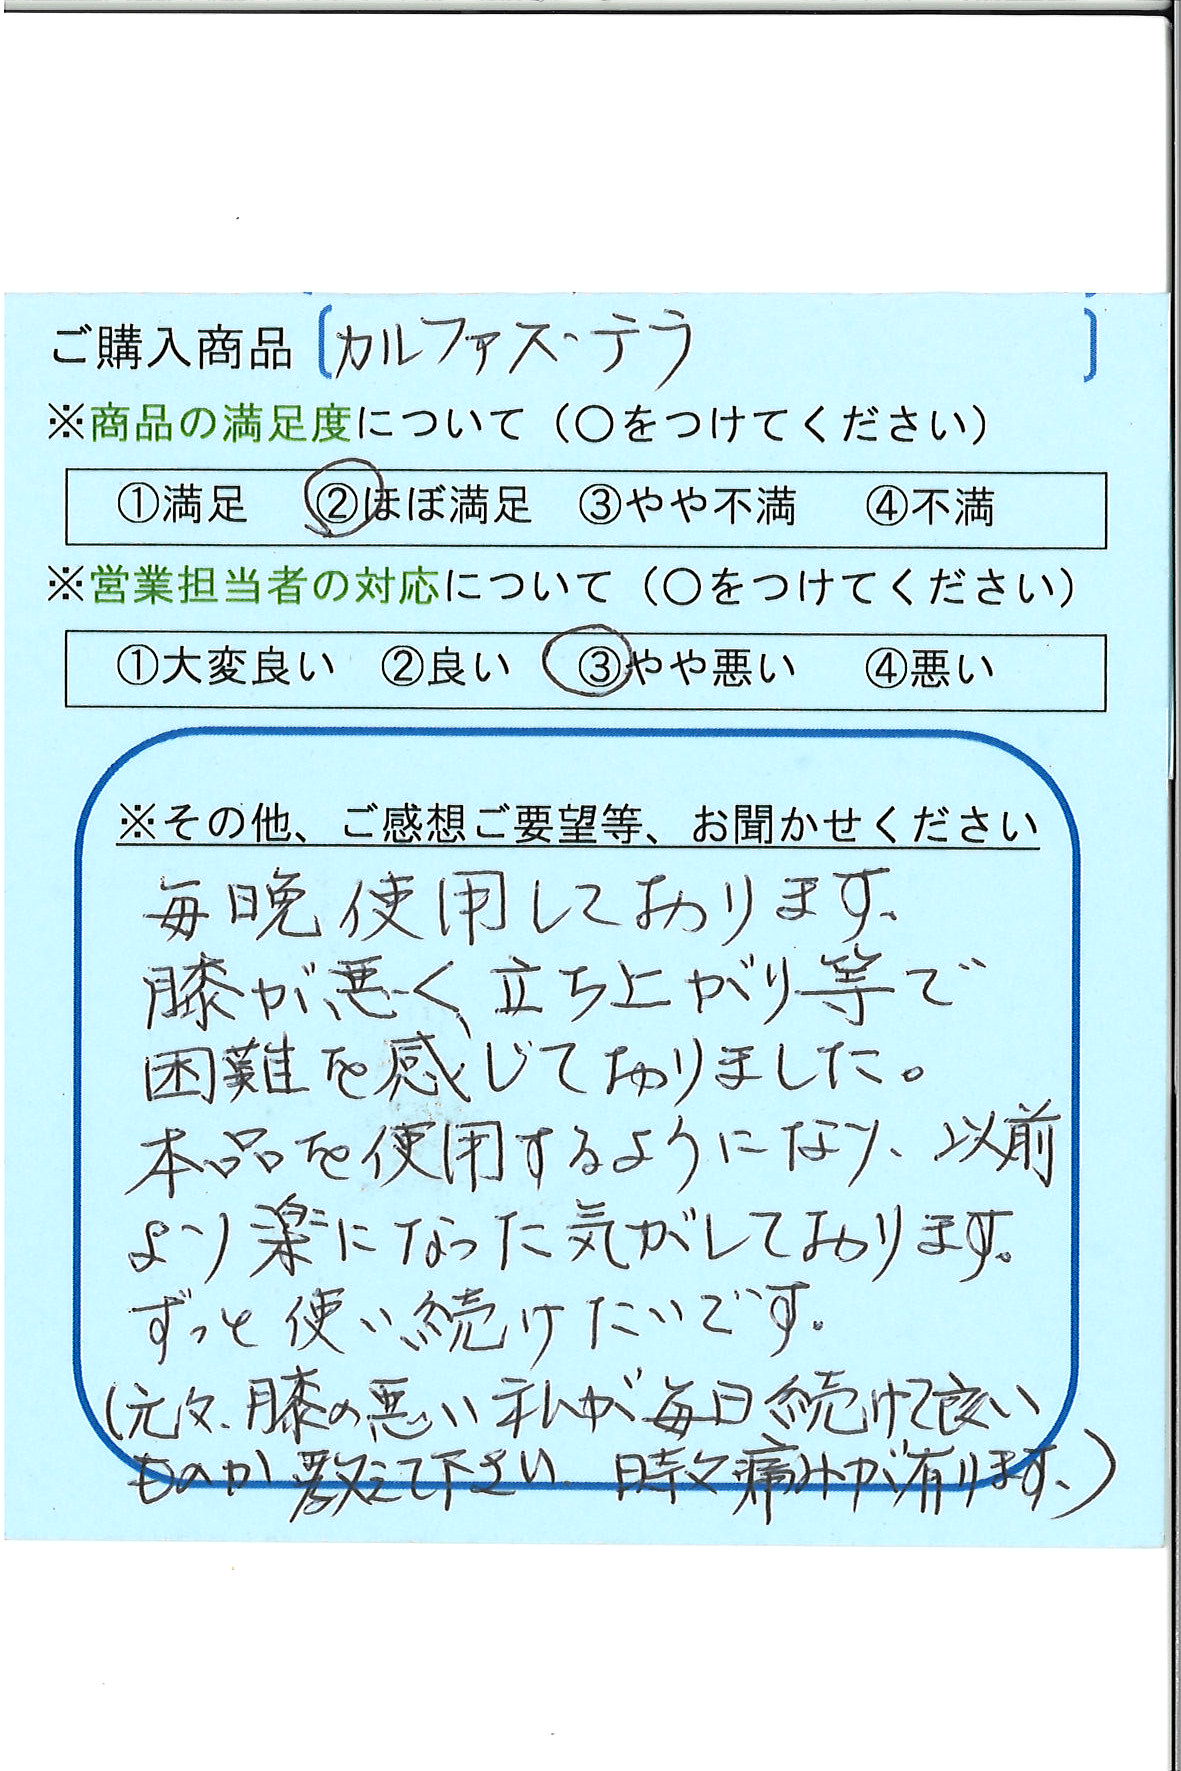 ご購入商品〔カルファス・テラ〕
※商品の満足度について（○をつけてください）
①満足 ②ほぼ満足 ③やや不満 ④不満
※営業担当者の対応について（○をつけてください）
①大変良い ②良い ③やや悪い ④悪い
※その他、ご感想ご要望等、お聞かせください
毎晩使用しております。
膝が悪く、立ち上がり等で
困難を感じておりました。
本品を使用するようになり、以前
より楽になった気がしております。
ずっと使い続けたいです。
(元々、膝の悪い私が毎日続けて良い
ものか教えて下さい。時々痛みが有ります。)